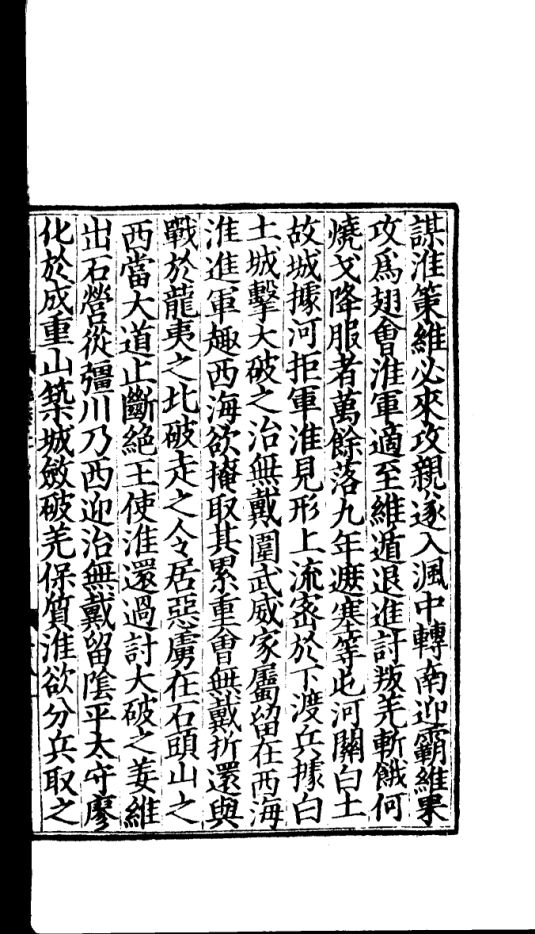 謀淮策維必來攻親遂入渢中轉南迎霸維果
攻爲翅會淮軍適至維遁退進討叛羌斬餓何
燒戈降服者萬餘落九年遮塞等屯河關白土
故城據河拒軍淮見形上流密於下渡兵據白
土城擊大破之治無戴圍武威家屬留在西海
淮進軍趣西海欲掩取其累重會無戴折還與
戰於龍夷之北破走之令居惡虜在石頭山之
西當大道止斷絕王使淮還過討大破之姜維
出石營從彊川乃西迎治無戴留陰平太守廖
化於成重山築城斂破羌保質淮欲分兵取之